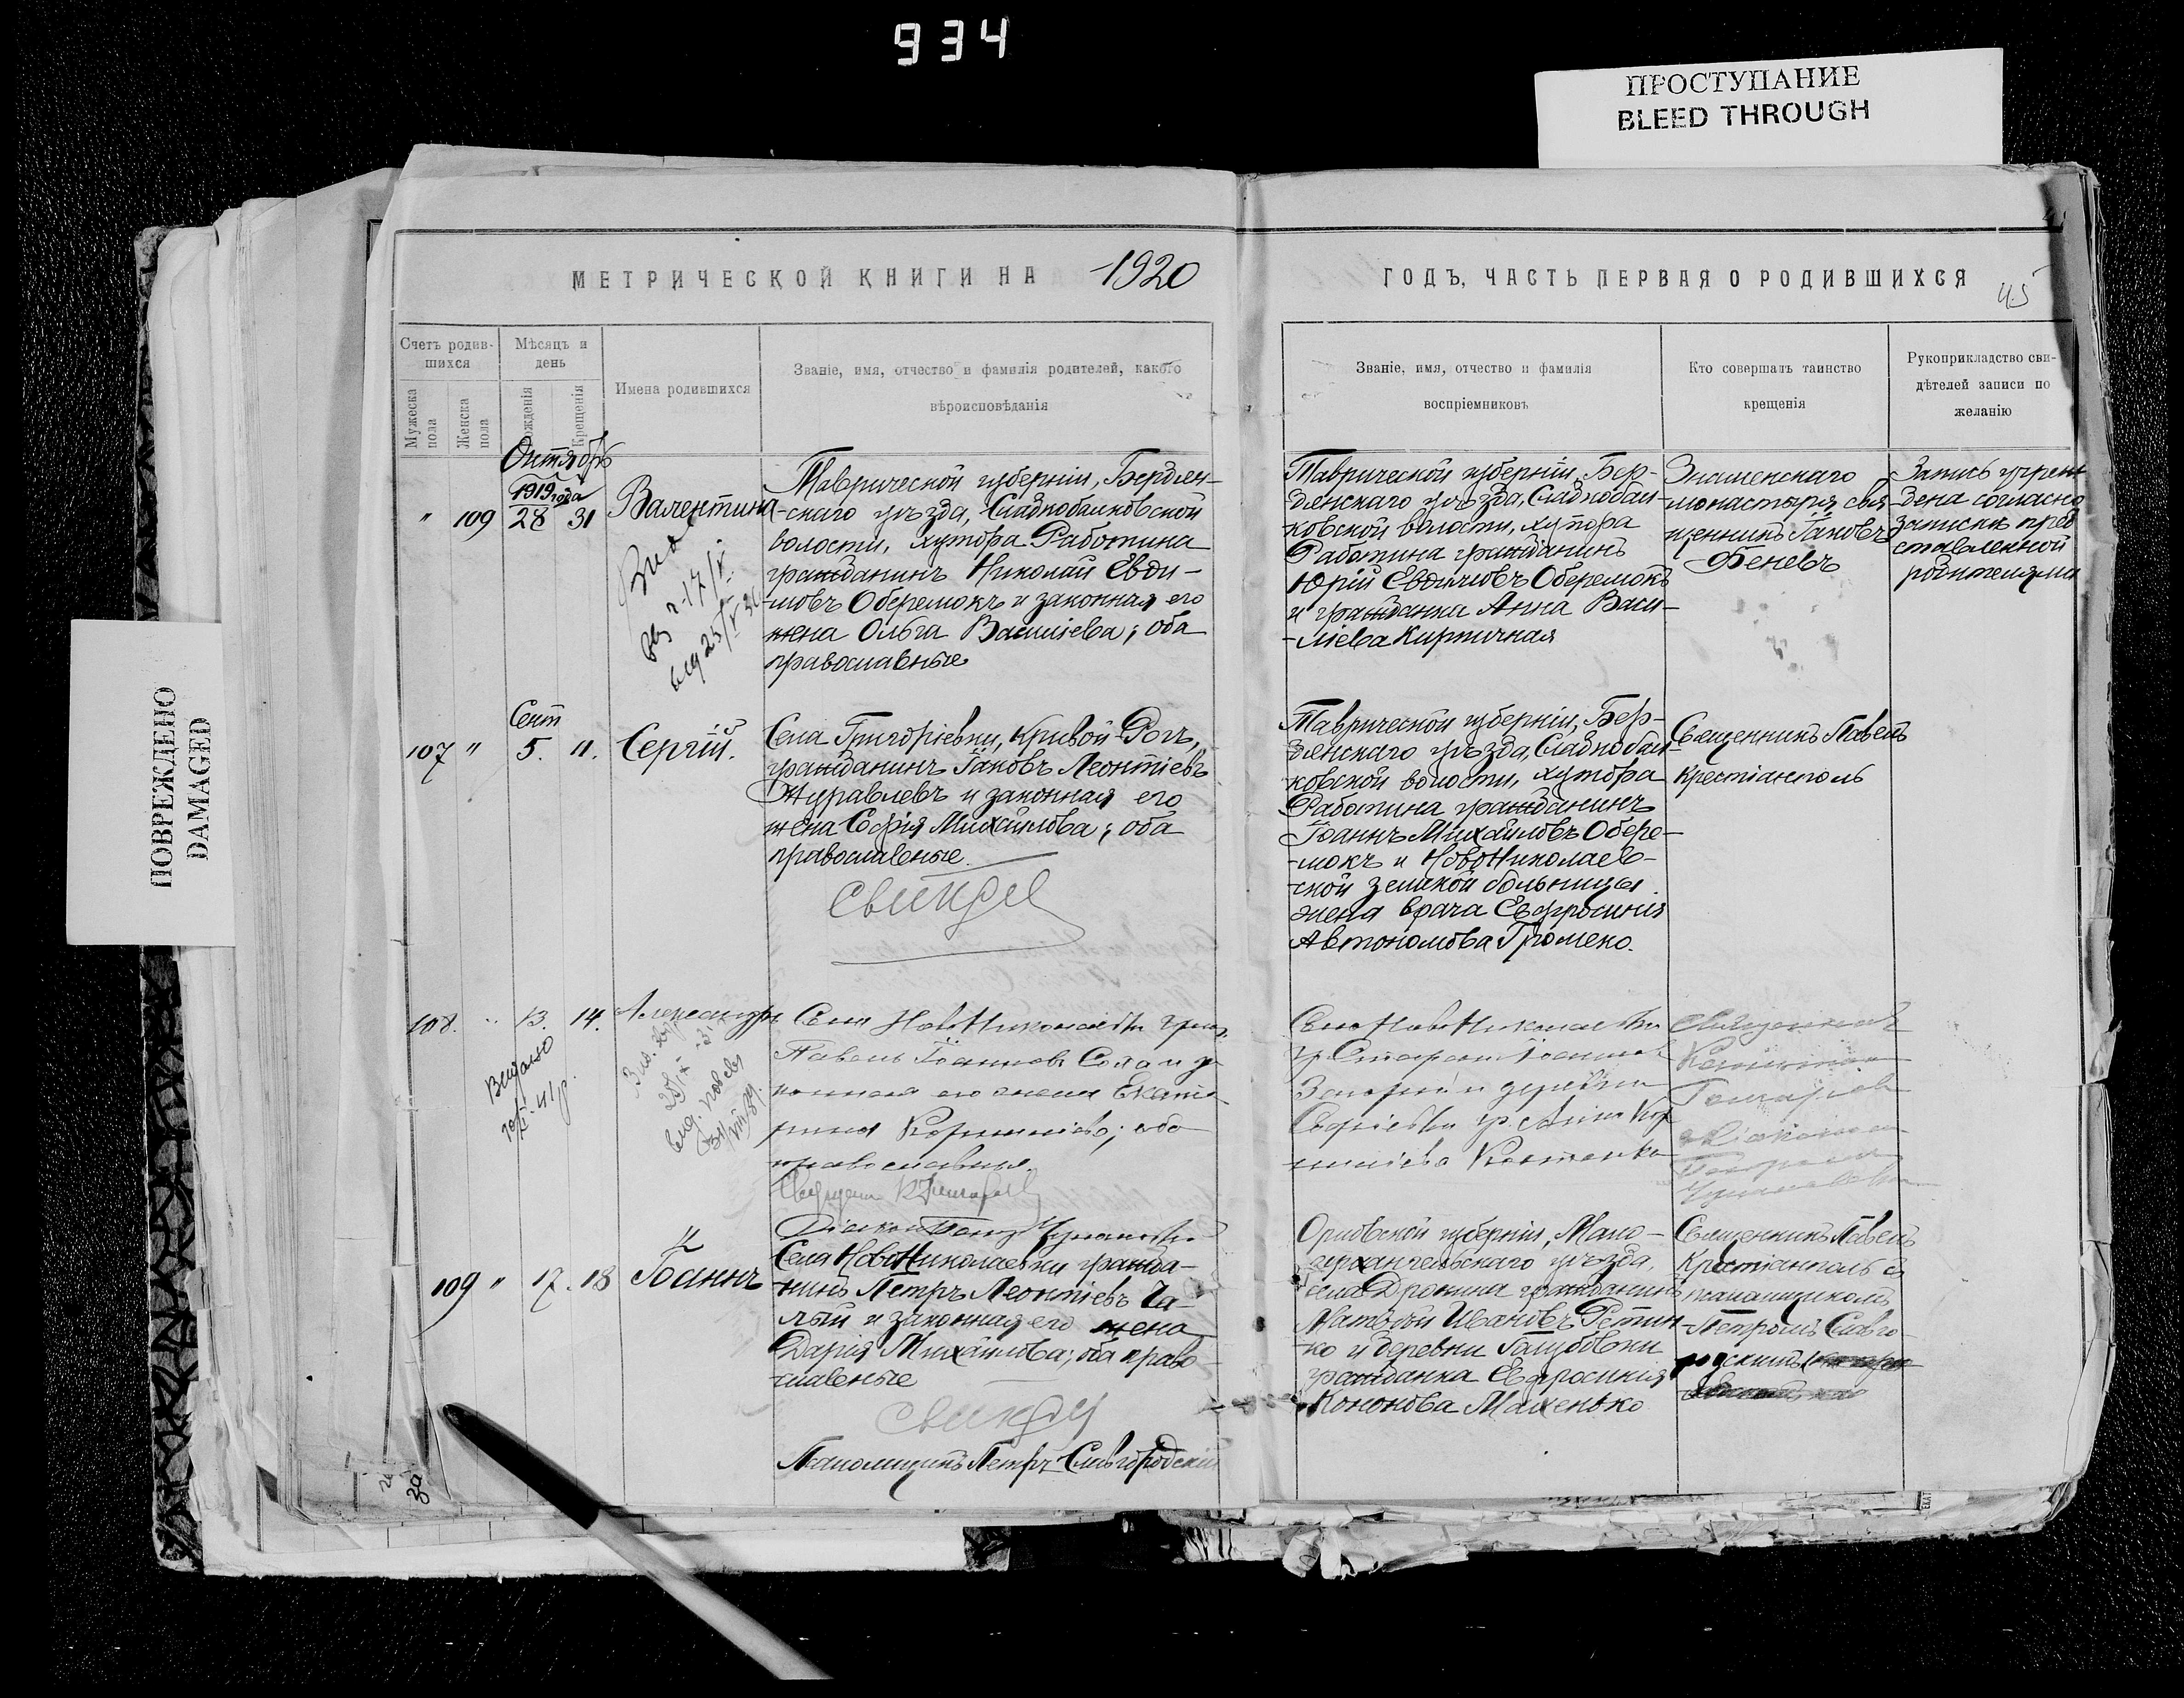 934
ПРОСТУПАНИЕ
BLEED THROUGH
ПОВРЕЖДЕНО
DAMAGED
МЕТРИЧЕСКОЙ КНИГИ НА 1920
ГОДЪ, ЧАСТЬ ПЕРВАЯ О РОДИВШИХСЯ
45
Счетъ родив-
шихся
Мужеска
пола
Женска
пола
Мѣсяцъ и
день
рожденія
Крещенія
Имена родившихся
Званіе, имя, отчество и фамилія родителей, какого
вѣроисповѣданія
Званіе, имя, отчество и фамилія
воспріемниковъ
Кто совершалъ таинство
крещенія
Рукоприкладство сви-
дѣтелей записи по
желанію
Октябрь
1919 года
" 109 28 31
Валентина
Таврической губерніи, Бердян-
-скаго уѣзда, Сладкобалковской
волости, хутора Работина
гражданинъ Николай Евѳи-
-мовъ Оберемокъ и законная его
жена Ольга Василіева; оба
православные
Таврической губерніи, Бер-
дянскаго уѣзда, Сладкобал-
ковской волости, хутора
Работина гражданинъ
Юрій Евѳимовъ Оберемокъ
и гражданка Анна Васи-
-ліева Кирпичная
Знаменскаго
монастыря свя
щенникъ Іаковъ
Беневъ
Запись учреж
дена согласно
записки пред
ставленной
родителями
Сент
107 " 5. 11.
Сергій.
Села Григоріевки, Кривой-Рогъ,
гражданинъ Іаковъ Леонтіевъ
Журавлевъ и законная его
жена Софія Михайлова; оба
православные.
Таврической губерніи, Бер-
дянскаго уѣзда, Сладкобал-
ковской волости, хутора
Работина гражданинъ
Іоаннъ Михайловъ Обере-
-мокъ и НовоНиколаев-
ской земской больницы
жена врача Евфросинія
Автономова Громеко.
Священникъ Павелъ
Крестіанполь
108. " 13. 14.
Александръ
Села НовоНиколаевки граж.
Павелъ Іоанновъ
его жена Екате
рина; оба
православные.
Села НовоНиколаевки
гр. Іоаннов
и деревни
Софіевки гр. Анна Кор
ниліева Костенко
Священник
109 " 17. 18
Іоаннъ
Села НовоНиколаевки гражда-
нинъ Петръ Леонтіевъ Ча-
лый и законная его жена
Дарія Михайлова; оба право-
славные
Псаломщикъ Петръ Славгородскій
Орловской губерніи, Мало-
архангельскаго уѣзда,
села Дронина гражданинъ
Матвѣй Ивановъ Ретин-
ко и деревни Голубовки
гражданка Евфросинія
Кононова Махенько
Священникъ Павелъ
Крестіанполь съ
псаломщикомъ
Петромъ Славго-
родскимъ